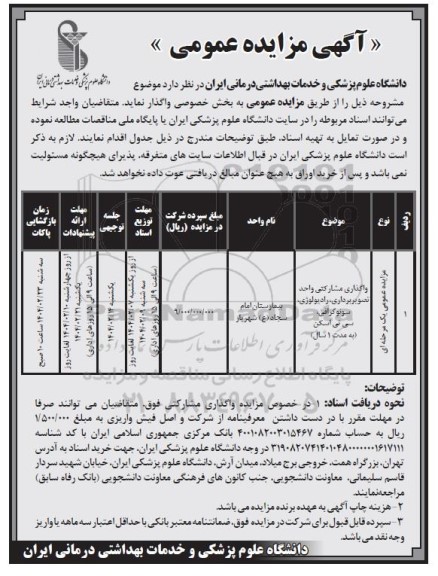 « آگهی مزایده عمومی »
دانشگاه علوم پزشکی و خدمات بهداشتی درمانی ایران
دانشگاه علوم پزشکی و خدمات بهداشتی درمانی ایران در نظر دارد موضوع
مشروحه ذیل را از طریق مزایده عمومی به بخش خصوصی واگذار نماید. متقاضیان واجد شرایط
می‌توانند اسناد مربوطه را در سایت دانشگاه علوم پزشکی ایران یا پایگاه ملی مناقصات مطالعه نموده
و در صورت تمایل به تهیه اسناد، طبق توضیحات مندرج در ذیل جدول اقدام نمایند. لازم به ذکر
است دانشگاه علوم پزشکی ایران در قبال اطلاعات سایت های متفرقه، پذیرای هیچگونه مسئولیت
نمی باشد و پس از خرید اوراق به هیچ عنوان مبالغ دریافتی عودت داده نخواهد شد.
ردیف
نوع
موضوع
نام واحد
مبلغ سپرده شرکت در مزایده (ریال)
مهلت توزیع اسناد
جلسه توجیهی
مهلت ارائه پیشنهادات
زمان بازگشایی پاکات
مزایده عمومی یک مرحله ای
واگذاری مشارکتی واحد
تصویربرداری، رادیولوژی،
سونوگرافی
سی تی اسکن
(به مدت ۱ سال)
بیمارستان امام
سجاد (ع) شهریار
توضیحات:
نحوه دریافت اسناد: ۱- در خصوص مزایده واگذاری مشارکتی فوق، متقاضیان می توانند صرفا
در مهلت مقرر با در دست داشتن معرفینامه از شرکت و اصل فیش واریزی به مبلغ ۱/۵۰۰/۰۰۰
ریال به حساب شماره ۴۰۰۱۰۸۲۰۰۳۰۱۵۴۶۷ بانک مرکزی جمهوری اسلامی ایران با کد شناسه
در وجه دانشگاه علوم پزشکی ایران، جهت خرید اسناد به آدرس
تهران، بزرگراه همت، خروجی برج میلاد، میدان آرش، دانشگاه علوم پزشکی ایران، خیابان شهید سردار
قاسم سلیمانی، معاونت دانشجویی، جنب کانون های فرهنگی معاونت دانشجویی (بانک رفاه سابق)
مراجعه نمایند.
۲- هزینه چاپ آگهی به عهده برنده مزایده می باشد.
۳- سپرده قابل قبول برای شرکت در مزایده فوق، ضمانتنامه معتبر بانکی با حداقل اعتبار سه ماهه یا واریز
وجه نقد می باشد.
دانشگاه علوم پزشکی و خدمات بهداشتی درمانی ایران